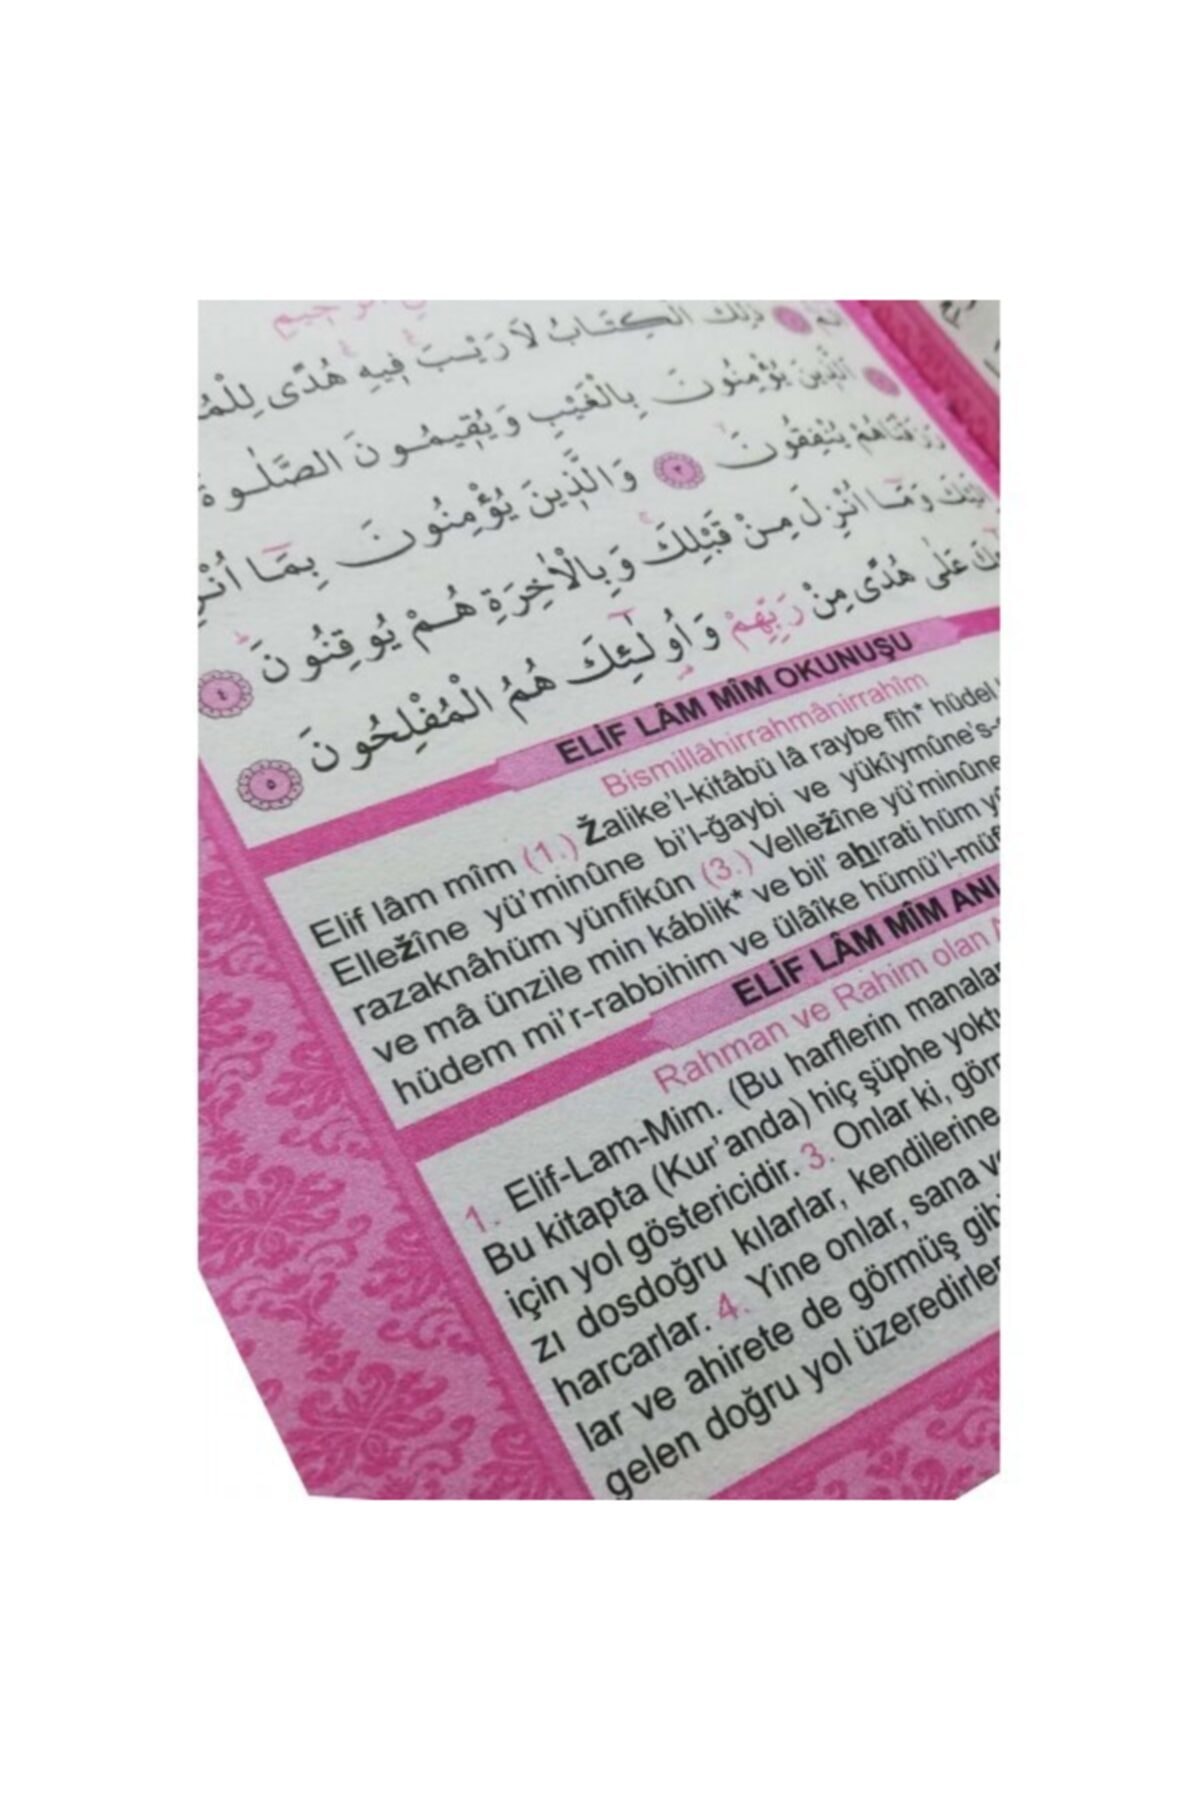 الٓمٓ ۝١ ذٰلِكَ الْكِتَابُ لَا رَيْبَ فٖيهِ هُدًى
اَلَّذٖينَ يُؤْمِنُونَ بِالْغَيْبِ وَيُقٖيمُونَ الصَّلٰوةَ
رَزَقْنَاهُمْ يُنْفِقُونَ ۝٣ وَالَّذٖينَ يُؤْمِنُونَ بِمَٓا
وَمَٓا اُنْزِلَ مِنْ قَبْلِكَ وَبِالْاٰخِرَةِ هُمْ يُوقِنُونَ ۝٤
عَلٰى هُدًى مِنْ رَبِّهِمْ وَاُو۬لٰٓئِكَ هُمُ الْمُفْلِحُونَ ۝٥
ELİF LÂM MÎM OKUNUŞU
Bismillâhirrahmânirrahîm
Elif lâm mîm (1.) Žalike'l-kitâbü lâ raybe fîh* hüdel
Elležîne yü'minûne bi'l-ğaybi ve yükîymûne's-
razaknâhüm yünfikûn (3.) Velležîne yü'minûne
ve mâ ünzile min káblik* ve bil' ahırati hüm
hüdem mi'r-rabbihim ve ülâîke hümü'l-müf
ELİF LÂM MÎM
Rahman ve Rahim olan
1. Elif-Lam-Mim. (Bu harflerin manaları
Bu kitapta (Kur'anda) hiç şüphe yoktu
için yol göstericidir. 3. Onlar ki, görm
zı dosdoğru kılarlar, kendilerine
harcarlar. 4. Yine onlar, sana
lar ve ahirete de görmüş gib
gelen doğru yol üzeredirler